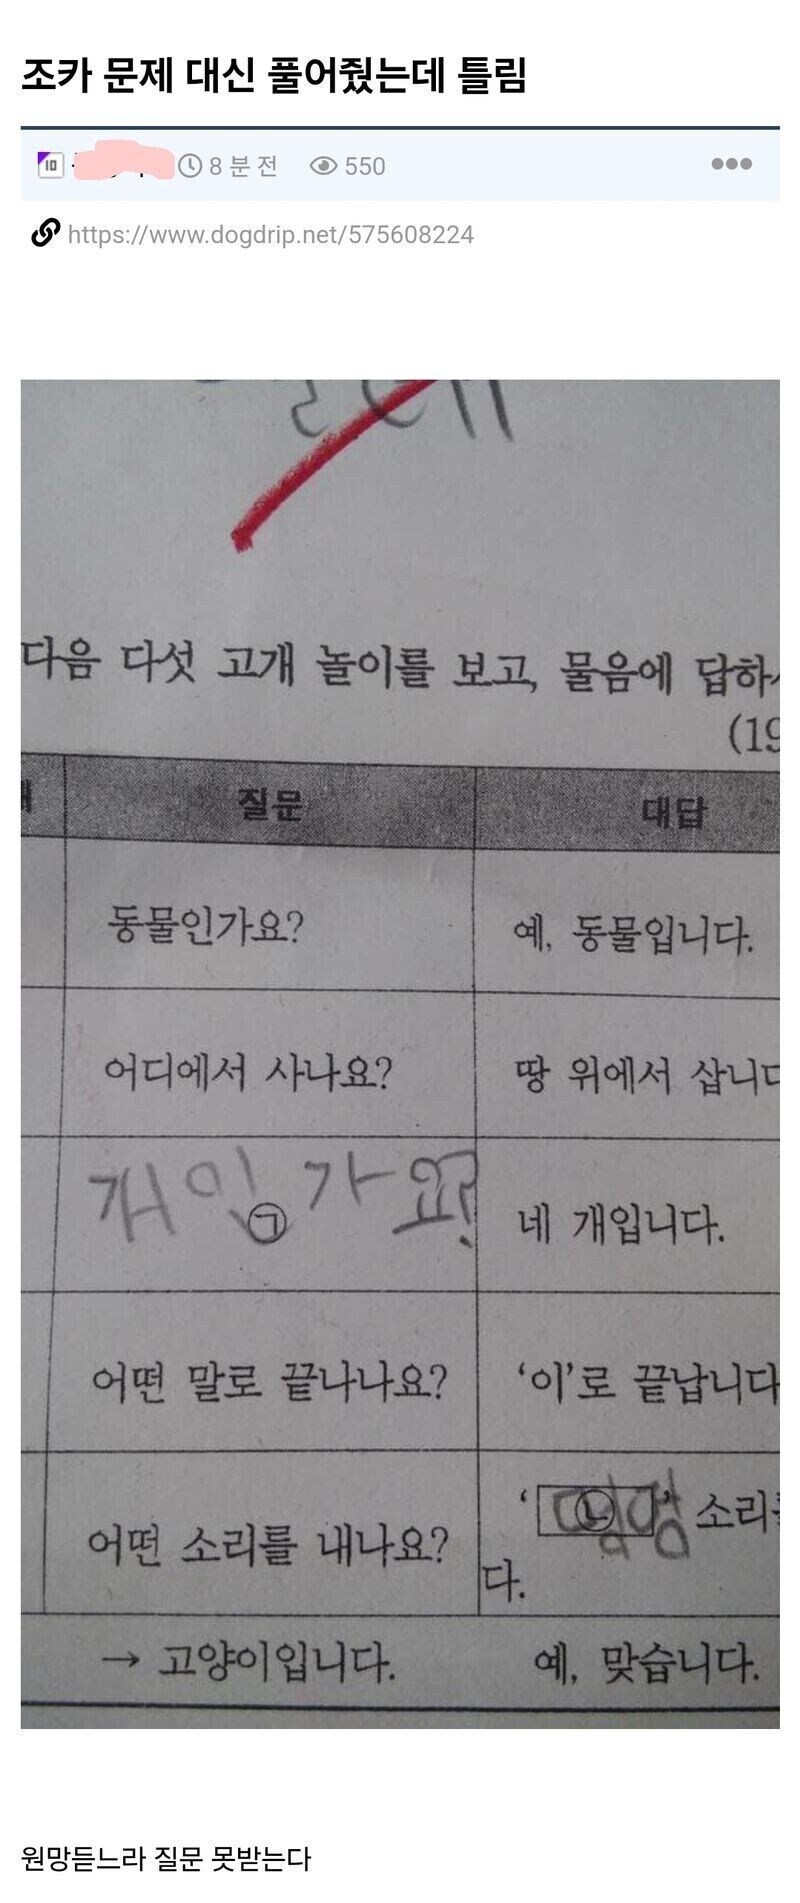 조카 문제 대신 풀어줬는데 틀림
8 분 전 550
https://www.dogdrip.net/575608224
다음 다섯 고개 놀이를 보고, 물음에 답하
(19
질문 대답
동물인가요? 예, 동물입니다.
어디에서 사나요? 땅 위에서 삽니다
개인가요? ㉠ 네 개입니다.
어떤 말로 끝나나요? ‘이’로 끝납니다
‘ ㉡ ’ 소리
어떤 소리를 내나요?
다.
→ 고양이입니다. 예, 맞습니다.
원망듣느라 질문 못받는다